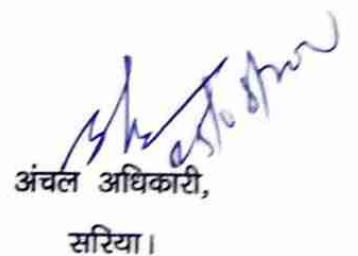 अंचल अधिकारी,
सरिया।